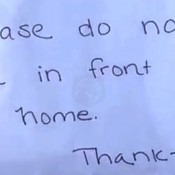 ase do no
in front
home.
Thank-